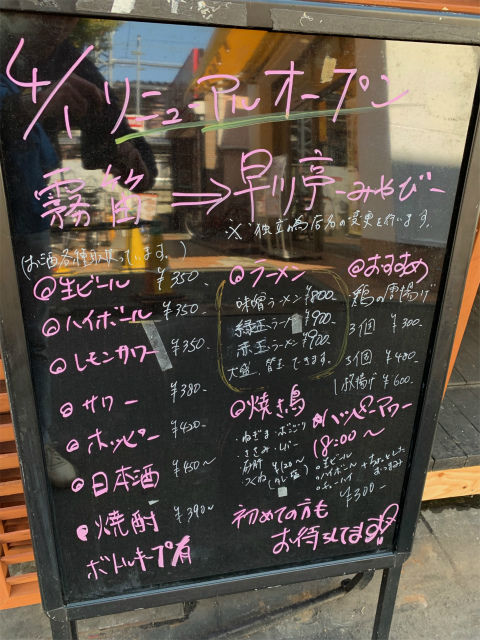 4/1 リニューアルオープン
霧笛 ⇒ 早川亭-みやび-
※独立の為店名の変更を行います。
(お酒各種取扱っています。)
◎生ビール ¥350-
◎ハイボール ¥350-
◎レモンサワー ¥350-
◎サワー ¥380-
◎ホッピー ¥420-
◎日本酒 ¥450~
◎焼酎 ¥390~
ボトルキープ有
◎ラーメン
味噌ラーメン ¥800-
緑玉ラーメン ¥900-
赤玉ラーメン ¥900-
大盛
できます。
◎焼き鳥
・ねぎま・ボンジリ
・ささみ・レバー
・砂肝 ¥120~
・つくね
◎おすすめ
鶏の唐揚げ
3個 ¥300-
5個 ¥480-
1枚揚げ ¥600-
ハッピーアワー
18:00~
◎生ビール
◎ハイボール
+ちょっとした
おつまみ
¥300-
初めての方も
お待ちしてます!!